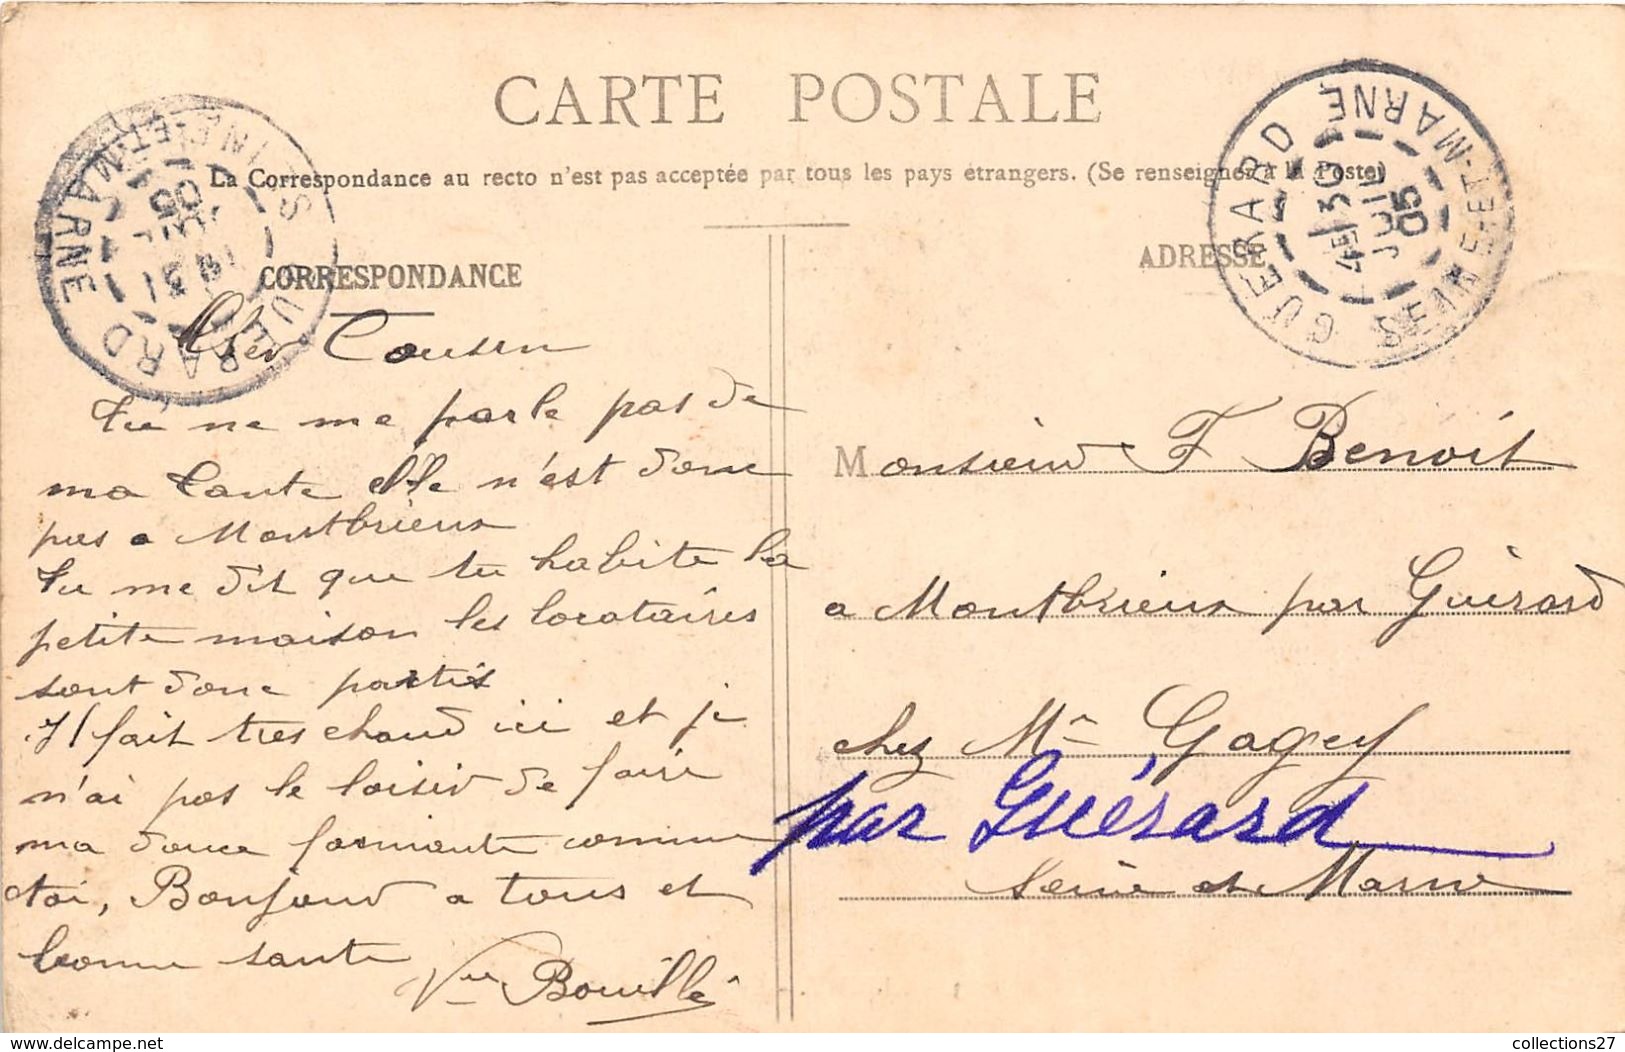 CARTE POSTALE
La Correspondance au recto n'est pas acceptée par tous les pays étrangers. (Se renseigner à la Poste)
CORRESPONDANCE
Cher Cousin
tu ne me parle pas de
ma tante elle n'est donc
pas a Montbrieux
tu me dit que tu habite la
petite maison les locataires
sont donc partis
Il fait tres chaud ici et je
n'ai pas le loisir de faire
ma douce farniente comme
toi, Bonjour a tous et
bonne sante
Vve Bouillé
ADRESSE
Monsieur F Benoit
a Montbrieux par Guérard
chez Mr Gagey
par Guérard
Seine et Marne
GUERARD SEINE-ET-MARNE
4E 30
JUIL
05
GUERARD SEINE-ET-MARNE
31
05
collections27